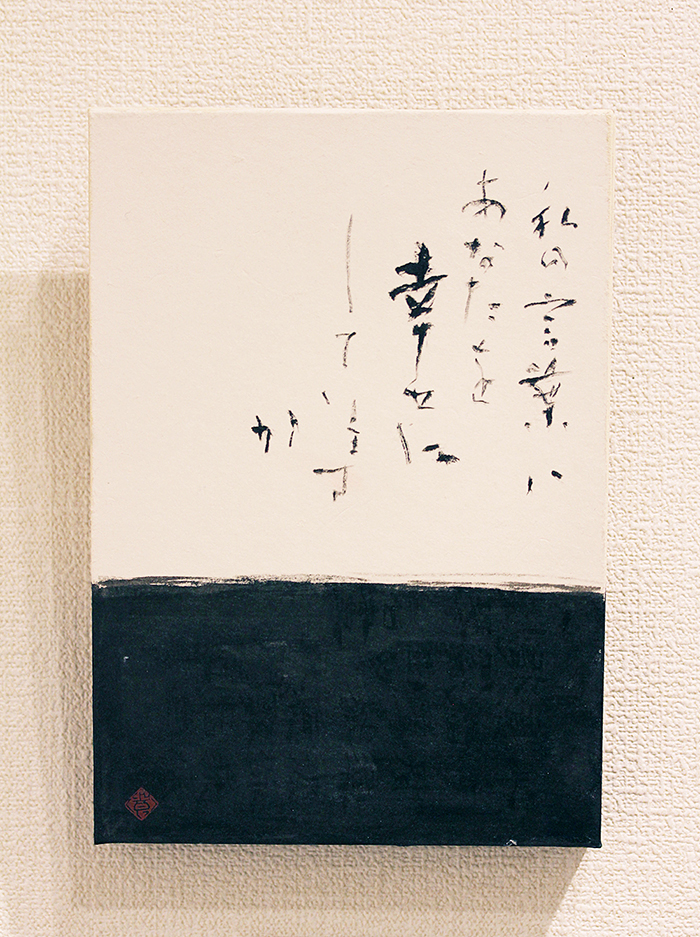 私の言葉は
あなたを
幸せに
していますか